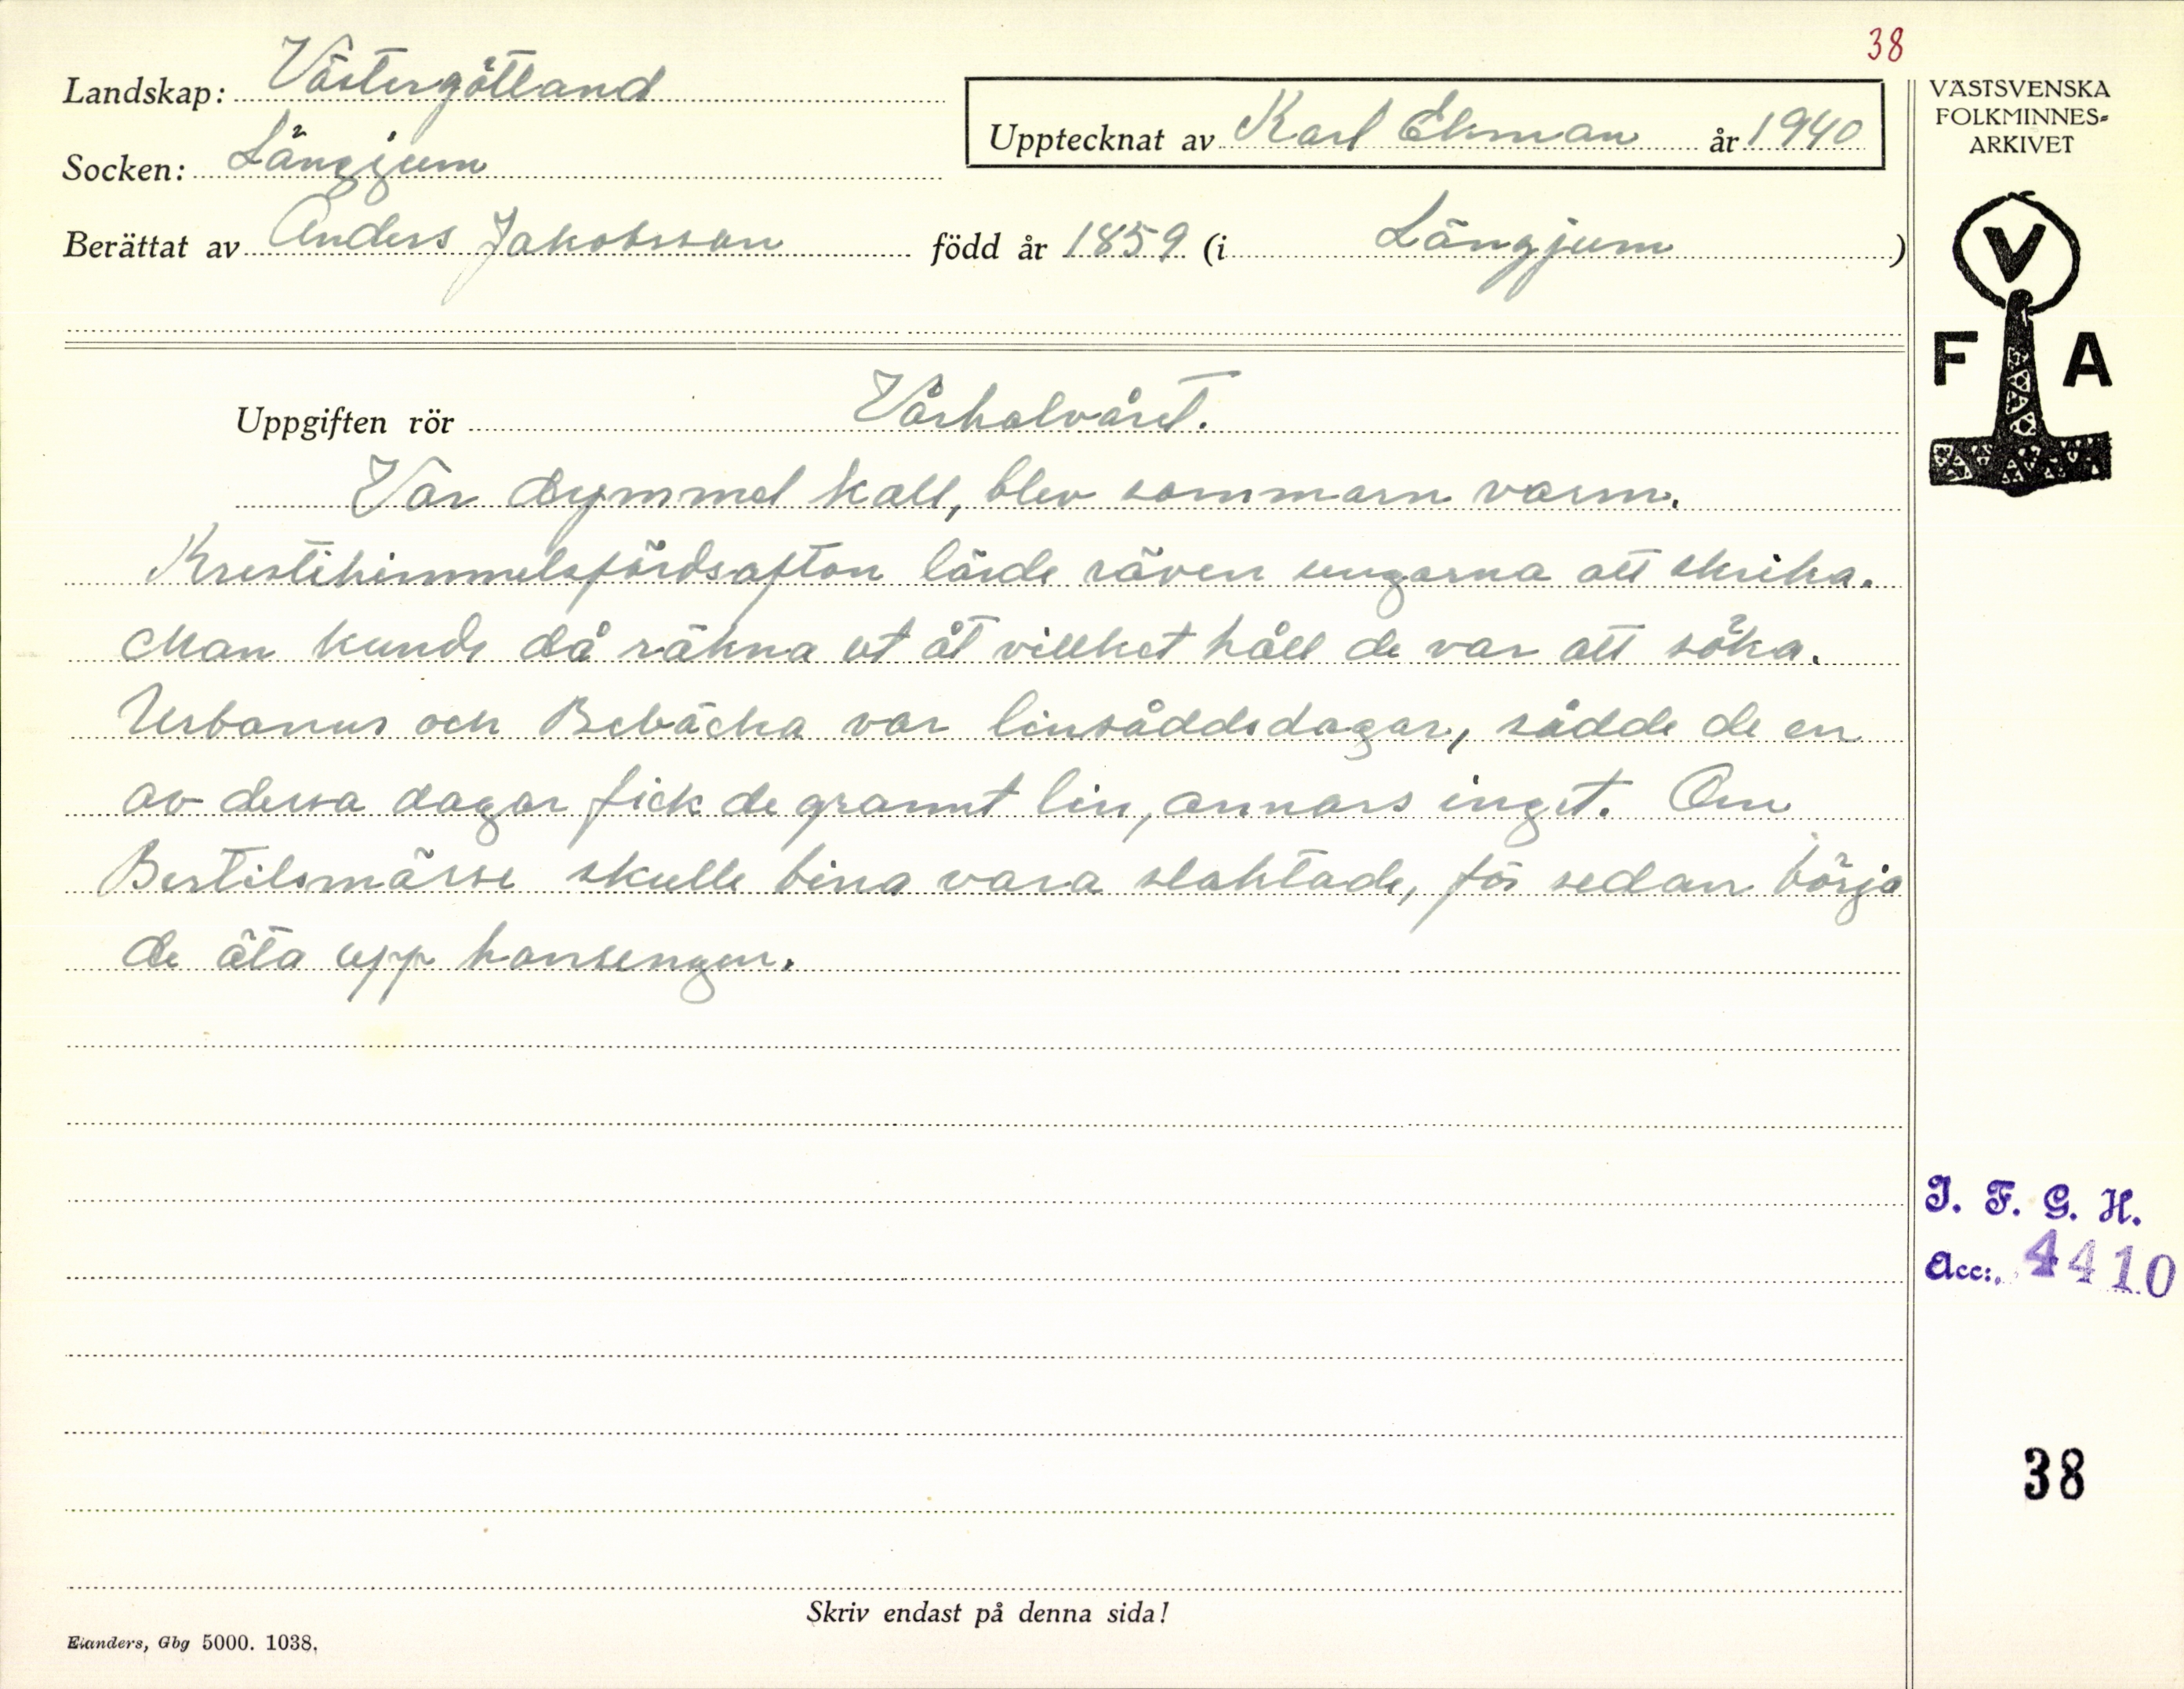 38
Landskap: Västergötland
Socken: Längjum
Upptecknat av Karl Ekman år 1940
VÄSTSVENSKA
FOLKMINNES-
ARKIVET
Berättat av Anders Jakobsson född år 1859 (i Längjum)
V
F A
Uppgiften rör Vårhalvåret.
Var dymmel kall, blev sommarn varm.
Krestihimmelsfärdsafton lärde räven ungarna att skrika.
Man kunde då räkna ut åt villket håll de var att söka.
Urbanus och Bebäcka var linsåddsdagar, sådde de en
av dessa dagar fick de grannt lin, annars inget. Om
Bertilsmässe skulle bina vara slaktade, för sedan börja
de äta upp honungen.
I. F. G. H.
Acc: 4410
38
Skriv endast på denna sida!
Elanders, Gbg 5000. 1038.